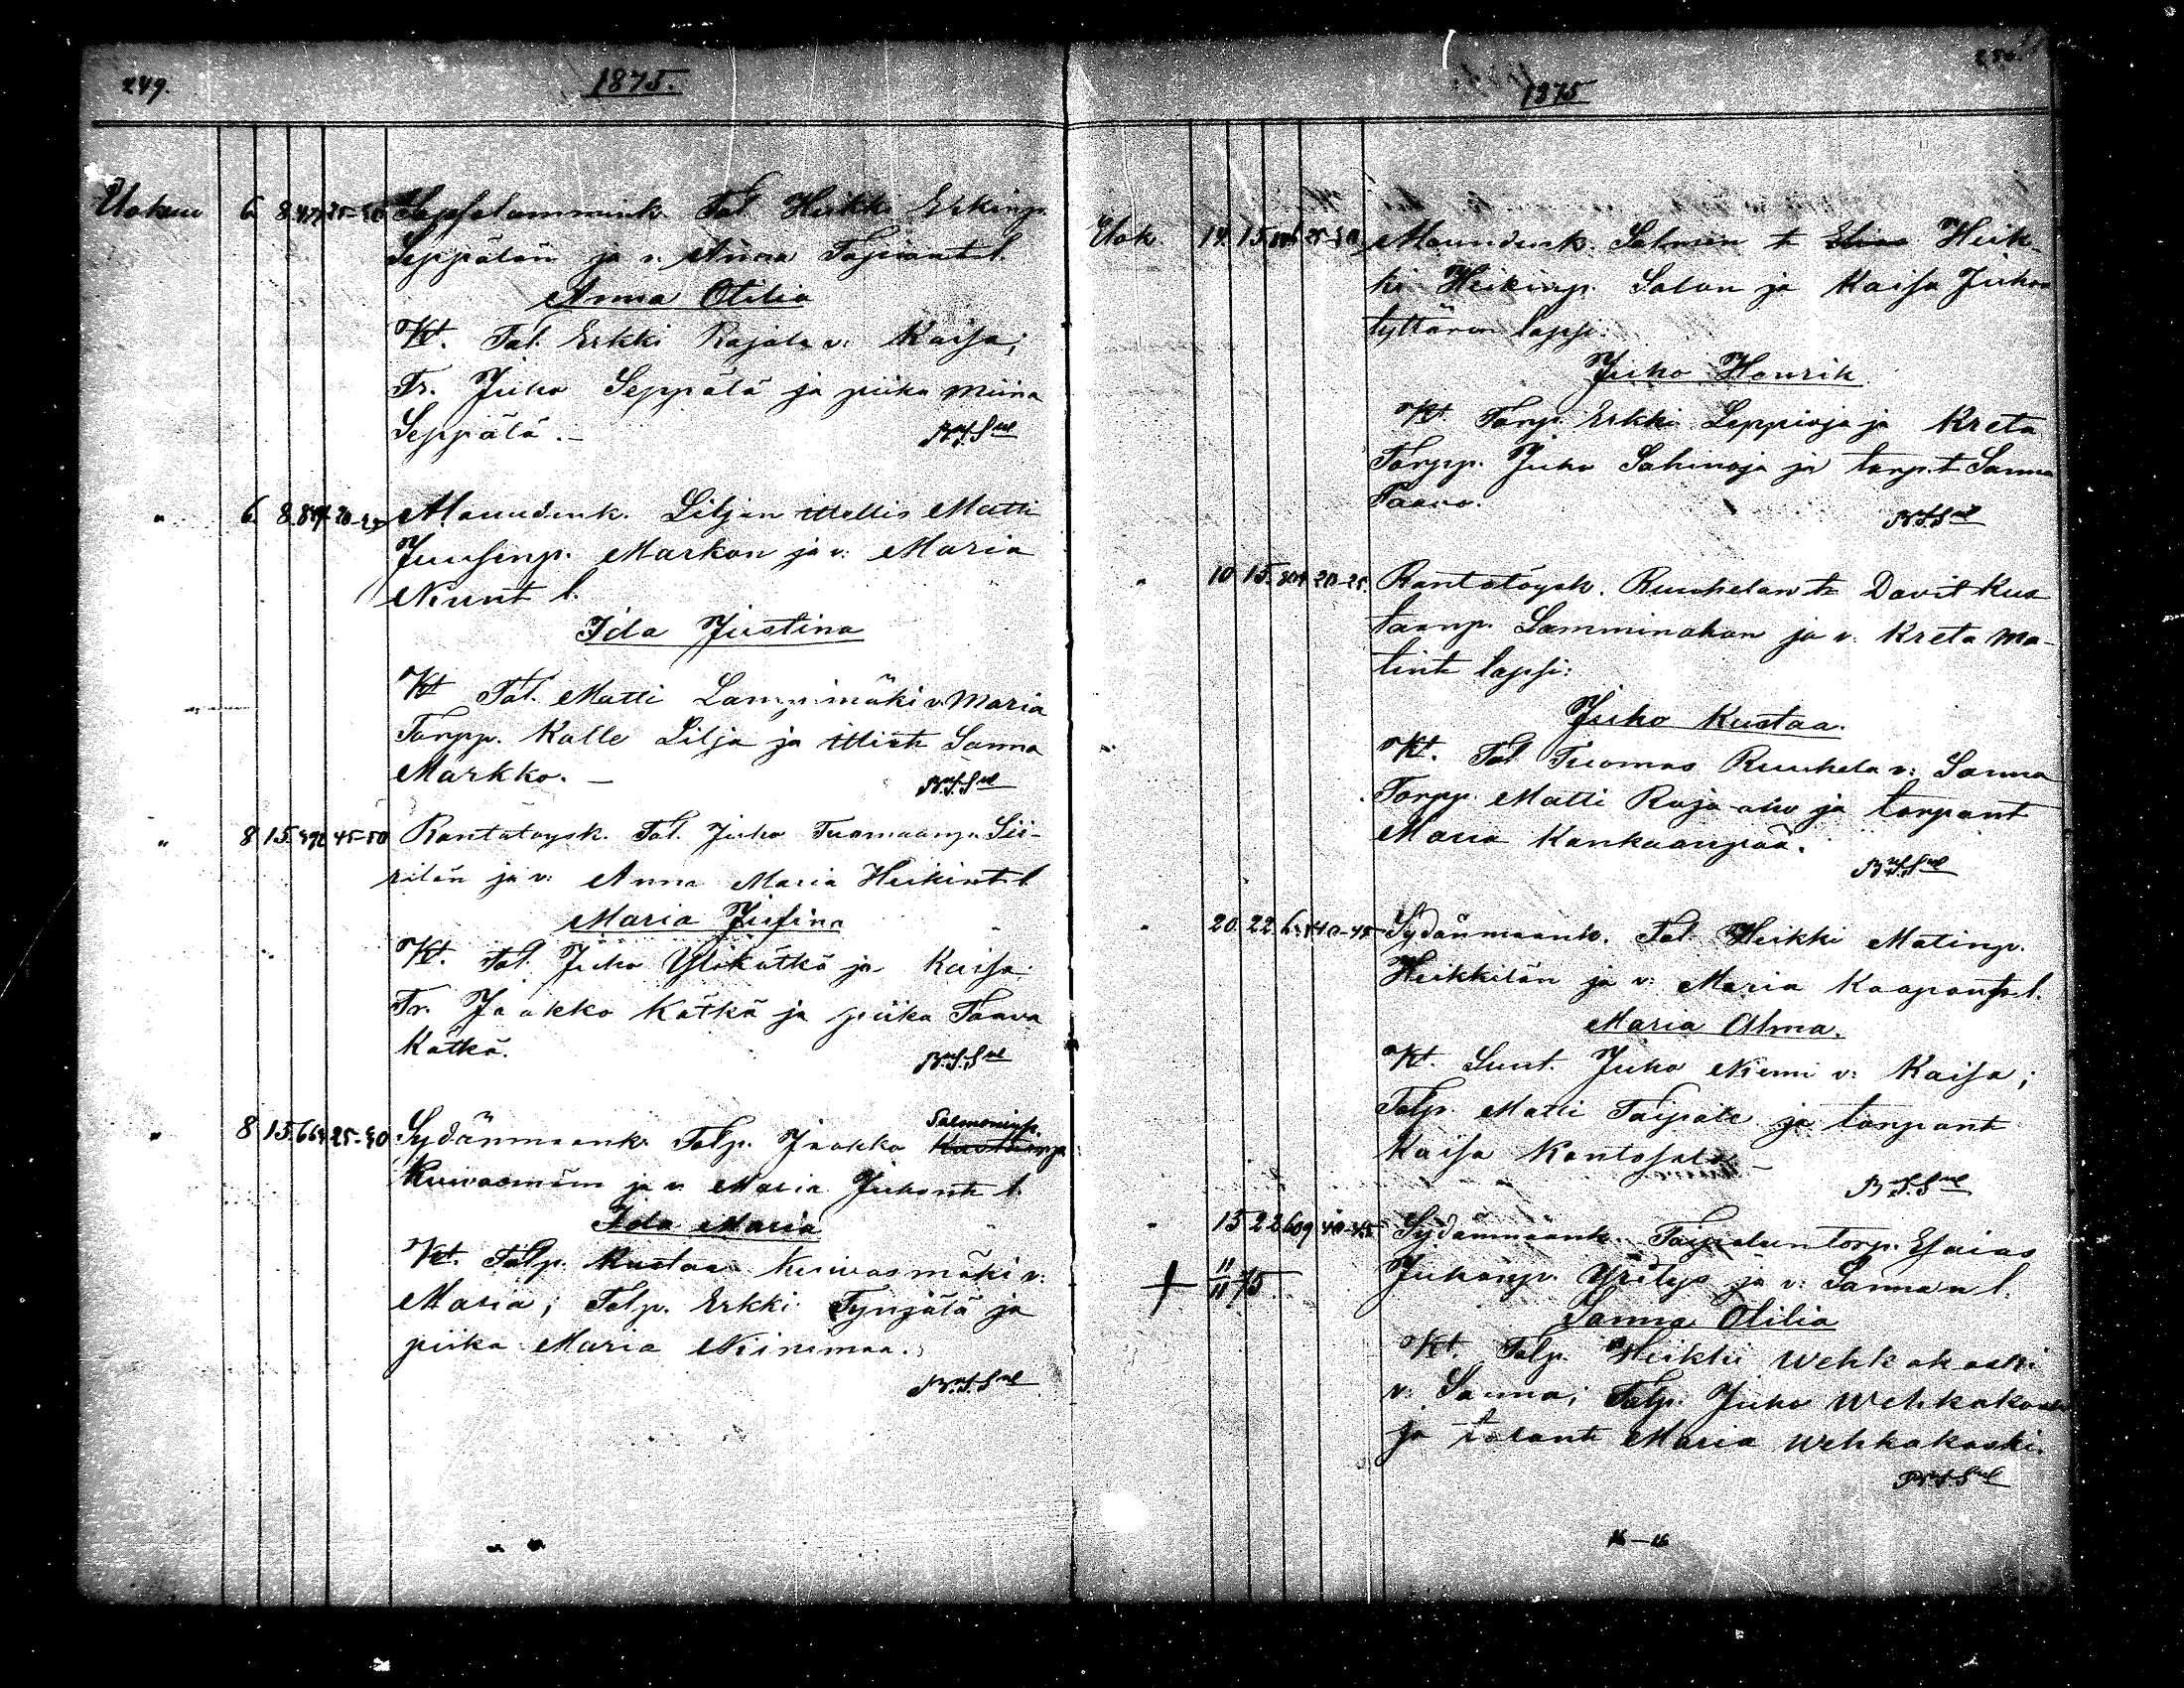 249.
1875.
Elokuu 6 8 25-30 Tal. Heikki Erkinp.
Seppälän ja v: Anna l.
Anna Otilia
Kt. Tal. Erkki Rajala v: Kaisa;
Tr. Juho Seppälä ja piika Miina
Seppälä.–
" 6 8 Liljan Matti
Markon ja v: Maria
l.
Ida Justina
Kt Tal. Matti Lampimäki v. Maria
Torpp. Kalle Lilja ja Sanna
Markko. –
" 8 15. 45-50 Rantatöysk. Tal. Juho Tuomaanp. Sii-
rilän ja v: Anna Maria Heikint l.
Maria Jusina
Kt. Tal. Juho Ylikätkä ja Kaisa
Tr. Jaakko Kätkä ja piika Taava
Kätkä.
" 8 15. 664 25-30 Sydänmaank. Talp. Jaakko Salomoninp.
Kuivasmäen ja v. Maria Juhont l.
Ida Maria
Kt. Talp. Kustaa Kuivasmäki v:
Maria; Talp. Erkki Tynjälä ja
piika Maria Niinimaa.
250.
1875
Elok. 14. 15. 25-30 Salmen t. Heik-
ki Heikinp. Salon ja Kaisa Juhon
tyttären lapsi:
Juho Henrik
Kt. Torp. Erkki Leppioja ja Kreta
Torpp. Juho Sahinoja ja torp.t Sanna
Paavo.
" 10. 15. 20-25. Rantatöysk. Ruuhelan t. Davit Kus
taanp. Lamminahon ja v: Kreta Ma-
tint lapsi:
Juho Kustaa.
Kt. Tal Tuomas Ruuhela v: Sanna
Torpp. Matti Raja-aho ja torpant
Maria Kankaanpää.
" 20. 22. 40-45 Sydänmaank. Tal. Heikki Matinp.
Heikkilän ja v: Maria Kaapont l.
Maria Alma.
Kt. Lunt. Juho Niemi v: Kaisa;
Talp. Matti Taipale ja torpant
Kaisa Kantosalo –
" 15 22 609 40-45 Sydänmaank. Taipaleen torp. Esaias
+ 11/11 75. Juhonp. Yritys ja v: Sannan l.
Sanna Otilia
Kt. Talp. Heikki Wehkakoski
v: Sanna; Talp. Juho Wehkakoski
ja talont Maria Wehkakoski.